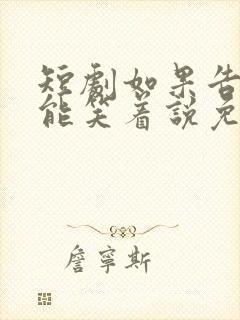 短劇如果告
能笑着說免
詹寧斯